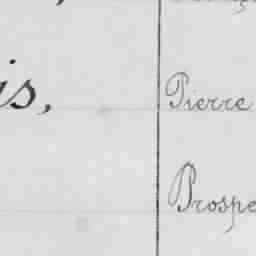 is,
Pierre
Prospe